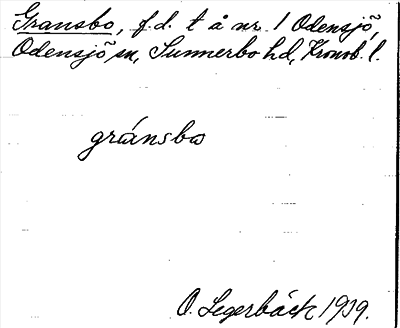 Gransbo, f.d. t å nr 1 Odensjö,
Odensjö sn, Sunnerbo hd, Kronob. l.
gránsbo
O. Legerbäck 1919.